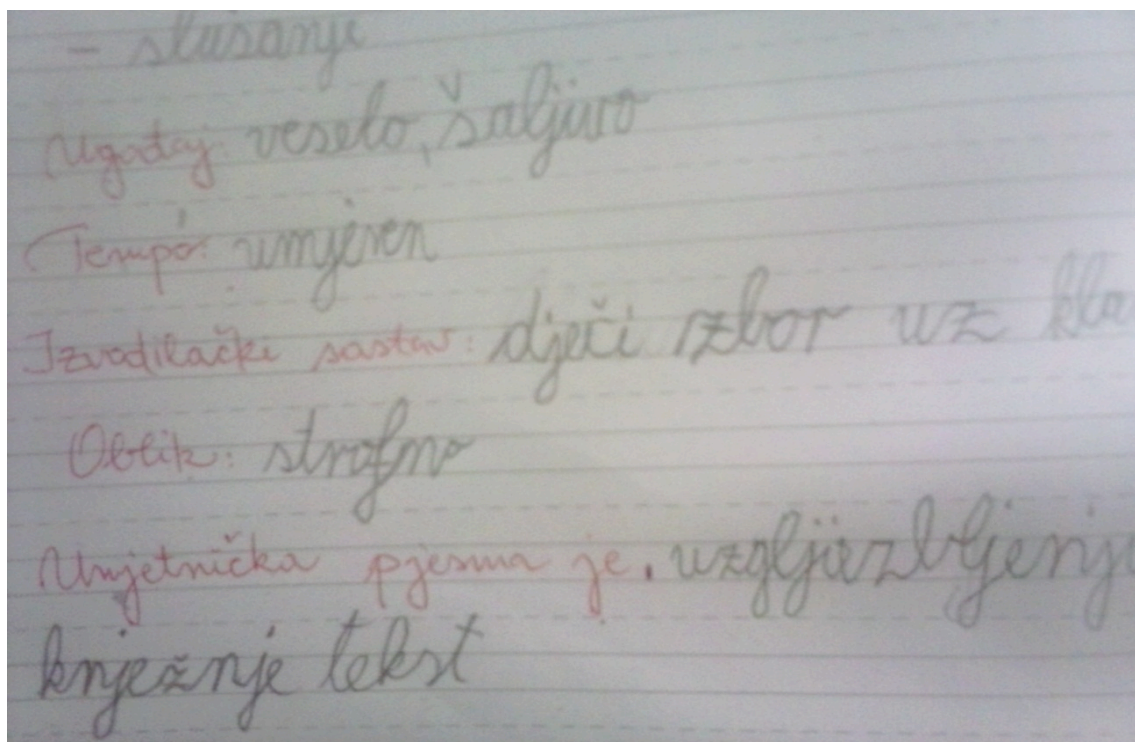 - slušanje
Ugođaj veselo, šaljivo
Tempo: umjeren
Izvodilački sastav: dječi zbor uz kla
Oblik: strofno
Umjetnička pjesma je. uzgljazbljenje
knježnje tekst